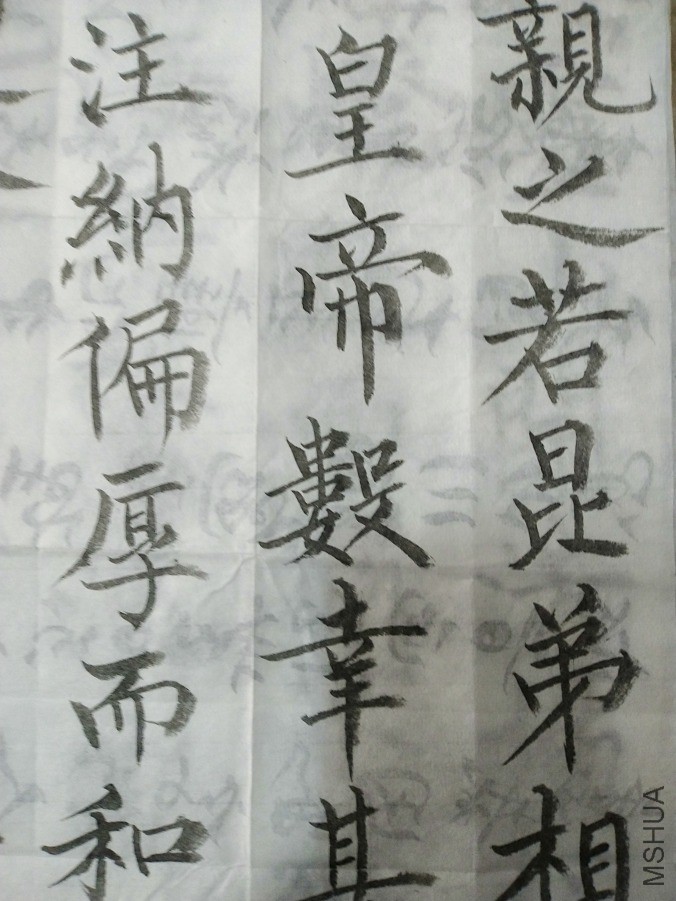 親之若昆弟相
皇帝數幸其
注納偏厚而和
MSHUA